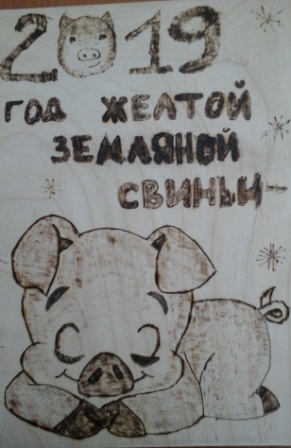 2019
ГОД ЖЕЛТОЙ
ЗЕМЛЯНОЙ
СВИНЬИ-